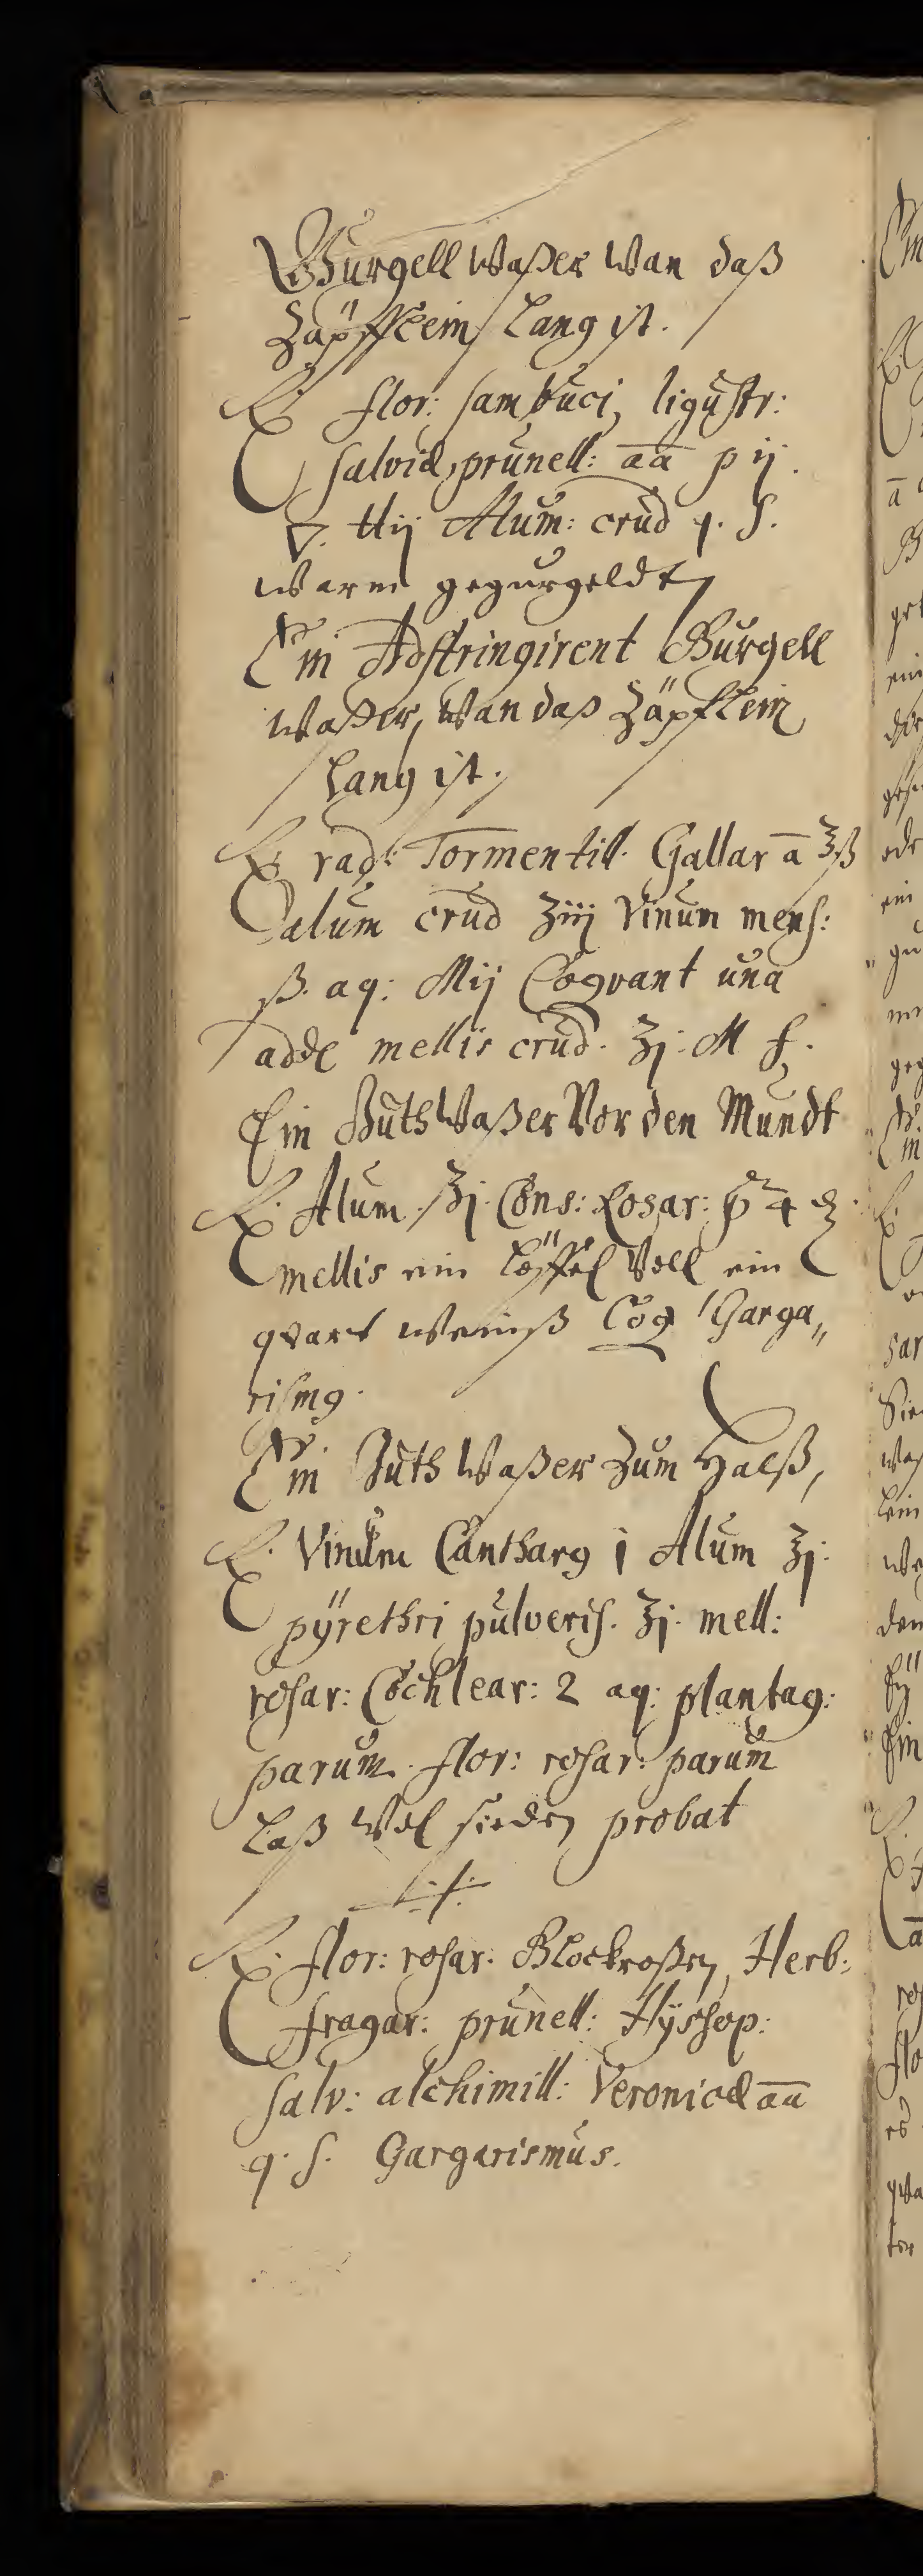 Gurgell Waßer Wan daß
Zäpfflein lang ist.
℞. flor: sambuci, ligustr:
salviæ, prunell: aā p ij.
▽. ℔ij Alum: crud q. s.
warm gegurgeldt
Ein Adstringirent Gurgell
Waßer, Wan daß Zäpflein
lang ist.
℞ rad: Tormentill. Gallar ā ℥ß
alum crud ʒiij Vinum mens:
ß. aq: Mij Coqvant una
adde mellis crud. ℥j. M f.
Ein Guth Waßer Vor den Mundt
℞. Alum ℥j. Cons: Rosar: 4
mellis ein Löffel Voll ein
qvart weinß Coq Garga„
rismg.
Ein Guth Waßer Zum Halß,
℞. Vinum Cantharg i Alum ʒj.
pÿrethri pulveris. ʒj. mell:
rosar: Cochlear: 2 aq: plantag:
parum. flor: rosar: parum
Laß Wol sieden probat
℞. flor: rosar. Stockroßen, Herb:
fragar: prunell: Hÿssop:
salv: alchimill: Veronicæ aā
q. s. Gargarismus.